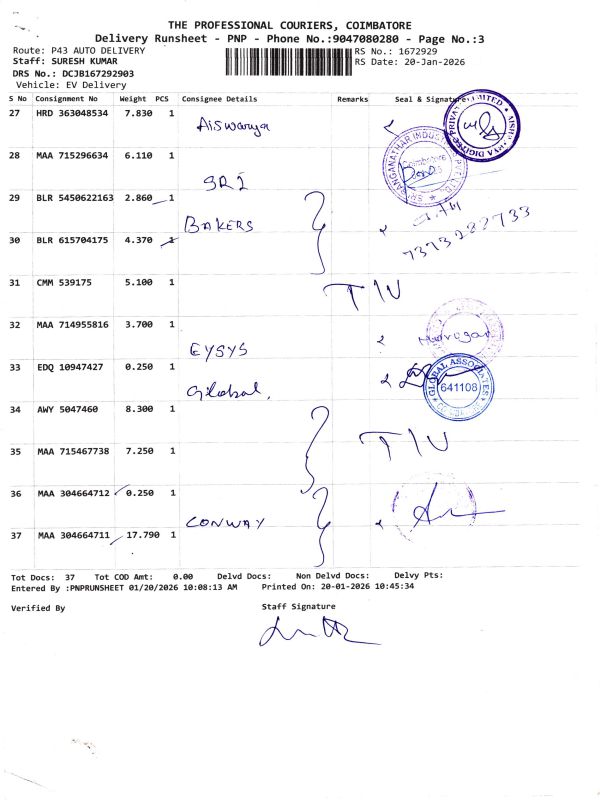 THE PROFESSIONAL COURIERS, COIMBATORE
Delivery Runsheet - PNP - Phone No.:9047080280 - Page No.:3
Route: P43 AUTO DELIVERY
RS No.: 1672929
Staff: SURESH KUMAR
RS Date: 20-Jan-2026
DRS No.: DCJB167292903
Vehicle: EV Delivery
S No Consignment No Weight PCS Consignee Details Remarks Seal & Signature
27 HRD 363048534 7.830 1 Aiswarya
28 MAA 715296634 6.110 1 SRI
29 BLR 5450622163 2.860 1
BAKERS 7373282733
30 BLR 615704175 4.370 1
31 CMM 539175 5.100 1 TIU
32 MAA 714955816 3.700 1 EYSYS Murugan
33 EDQ 10947427 0.250 1 Global, GLOBAL ASSOCIATES 641108
34 AWY 5047460 8.300 1
TIU
35 MAA 715467738 7.250 1
36 MAA 304664712 0.250 1
CONWAY
37 MAA 304664711 17.790 1
Tot Docs: 37 Tot COD Amt: 0.00 Delvd Docs: Non Delvd Docs: Delvy Pts:
Entered By :PNPRUNSHEET 01/20/2026 10:08:13 AM Printed On: 20-01-2026 10:45:34
Verified By Staff Signature